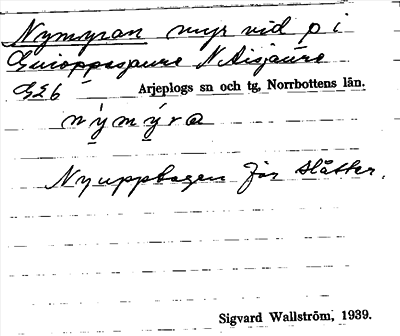 Nymyran myr vid p i
Guioppasjaure N Aisjaure
GΣ6 Arjeplogs sn och tg, Norrbottens län.
nýmýra
Nyupptagen för slåtter.
Sigvard Wallström, 1939.